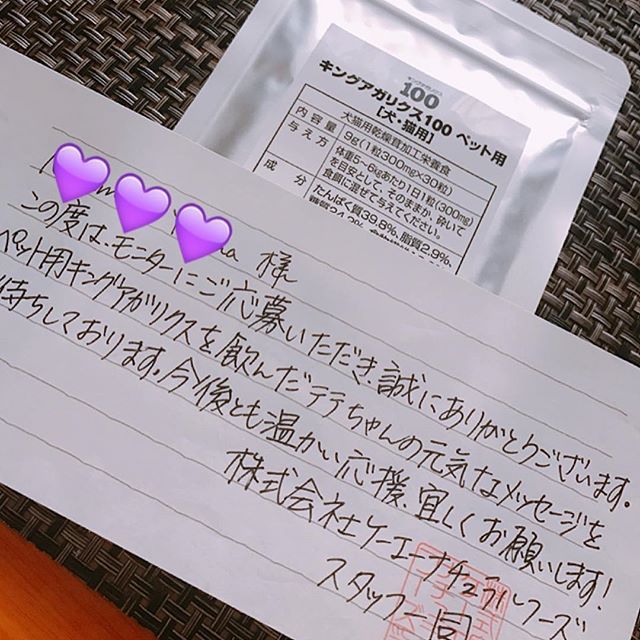 キングアガリクス
100
キングアガリクス100 ペット用
【犬・猫用】
犬猫用乾燥茸加工栄養食
内容量 9g(1粒300mg×30粒)
与え方 体重5~6kgあたり1日1粒(300mg)
を目安として、そのままか、砕いて
食餌に混ぜて与えてください。
成分 たんぱく質39.8%、脂質2.9%、
様
この度は、モニターにご応募いただき、誠にありがとうございます。
ペット用キングアガリクスを飲んだテテちゃんの元気なメッセージを
待ちしております。今後とも温かい応援、宜しくお願いします!
株式会社ケーエーナチュラルフーズ
スタッフ一同